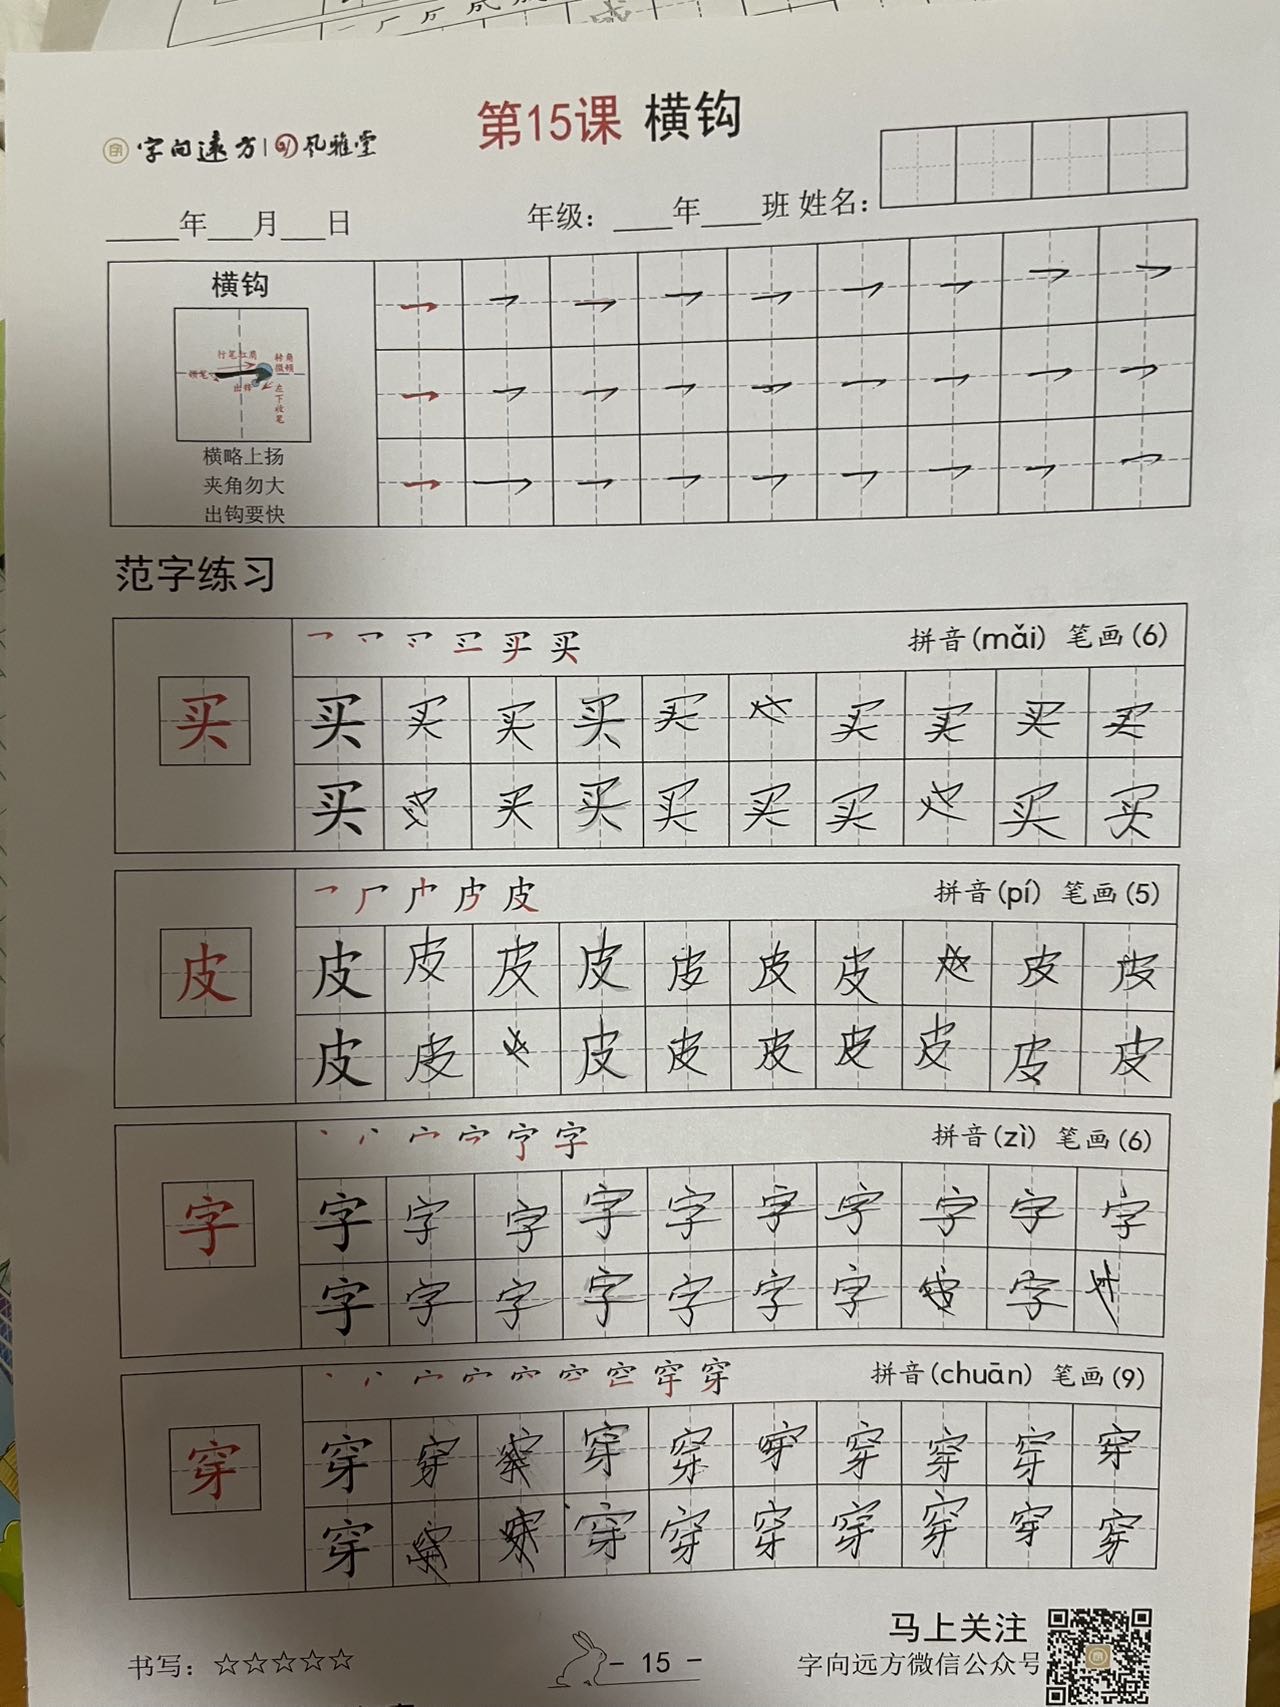 第15课 横钩
字向远方 风雅堂
年 月 日 年级： 年 班 姓名：
横钩
行笔扛肩
转角微顿
出锋
左下收笔
横略上扬
夹角勿大
出钩要快
范字练习
拼音(mǎi) 笔画(6)
买 买 买 买 买 买 买 买 买 买
买 买 买 买 买 买 买 买
拼音(pí) 笔画(5)
皮 皮 皮 皮 皮 皮 皮 皮 皮 皮
皮 皮 皮 皮 皮 皮 皮 皮 皮
拼音(zì) 笔画(6)
字 字 字 字 字 字 字 字 字 字 字
字 字 字 字 字 字 字 字
拼音(chuān) 笔画(9)
穿 穿 穿 穿 穿 穿 穿 穿 穿 穿
穿 穿 穿 穿 穿 穿 穿 穿
马上关注
书写：☆☆☆☆☆ - 15 - 字向远方微信公众号